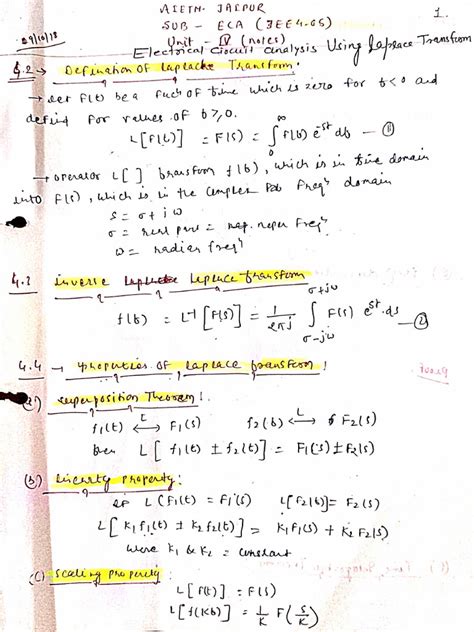 AIETM. JAIPUR
1.
SUB - ECA (3EE4-05)
29/10/18
Unit - IV (notes)
Electrical Circuit analysis Using Laplace Transform
4.2 → Defination of Laplace Transform:
→ Let f(t) be a func of time which is zero for t<0 and
defind for values of t≥0.
L[F(t)] = F(s) = ∫₀^∞ f(t) e^-st dt — (1)
→ operator L[ ] transform f(t), which is in time domain
into F(s), which is in the complex freqʸ domain
s = σ + jω
σ = real part = neper freqʸ
ω = radian freqʸ
4.3 inverse Laplace transform
f(t) = L⁻¹[F(s)] = 1/2πj ∫_{σ-jω}^{σ+jω} F(s) e^st.ds — (2)
4.4 → Properties of Laplace transform!
superposition Theorem!
f₁(t) ↔ᴸ F₁(s) f₂(t) ↔ᴸ F₂(s)
then L[f₁(t) ± f₂(t)] = F₁(s) ± F₂(s)
(b) Linearity Property:
if L(F₁(t) = F₁(s) L[f₂(t)] = F₂(s)
L[K₁f₁(t) ± K₂f₂(t)] = K₁F₁(s) + K₂F₂(s)
were K₁ & K₂ = constant
(c) Scaling Property:
L[F(t)] = F(s)
L[f(Kt)] = 1/K F(s/K)